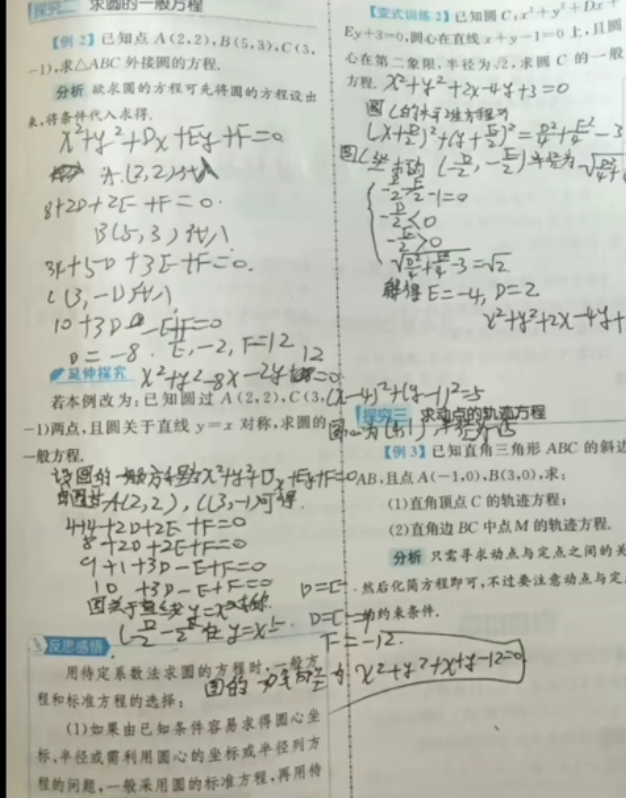 探究二 求圆的一般方程
【例 2】已知点 A(2,2),B(5,3),C(3,
-1),求△ABC 外接圆的方程.
分析 欲求圆的方程可先将圆的方程设出
来,将条件代入求得.
x²+y²+Dx+Ey+F=0
8+2D+2E+F=0.
B(5,3)代入
34+5D+3E+F=0.
C(3,-1)代入
10+3D-E+F=0
D=-8. E,-2, F=12
12
x²+y²-8x-2y+ =0
延伸探究
(x-4)²+(y-1)²=5
若本例改为:已知圆过 A(2,2),C(3,
-1)两点,且圆关于直线 y=x 对称,求圆的
圆心为(4,1)
一般方程.
设圆的一般方程为x²+y²+Dx+Ey+F=0
A(2,2), C(3,-1)可得.
4+4+2D+2E+F=0
8+2D+2E+F=0
9+1+3D-E+F=0
10 +3D-E+F=0
因关于直线y=x对称.
在y=x上.
D=E
F=-12.
圆的一般方程为 x²+y²+x+y-12=0
反思感悟
用待定系数法求圆的方程时,一般方
程和标准方程的选择:
(1)如果由已知条件容易求得圆心坐
标、半径或需利用圆心的坐标或半径列方
程的问题,一般采用圆的标准方程,再用待
【变式训练 2】已知圆 C:x²+y²+Dx+
Ey+3=0,圆心在直线 x+y-1=0 上,且圆
心在第二象限,半径为√2,求圆 C 的一般
方程. x²+y²+2x-4y+3=0
圆C的标准方程为
(x+D/2)²+(y+E/2)²=D²/4+E²/4-3
(-D/2,-E/2)半径为
-D/2-E/2-1=0
-D/2<0
-E/2>0
√(D²/4+E²/4-3)=√2
解得 E=-4, D=2
x²+y²+2x-4y+
探究三 求动点的轨迹方程
【例 3】已知直角三角形 ABC 的斜边
AB,且点 A(-1,0),B(3,0),求:
(1)直角顶点 C 的轨迹方程;
(2)直角边 BC 中点 M 的轨迹方程.
分析 只需寻求动点与定点之间的关
然后化简方程即可,不过要注意动点与定
的约束条件.